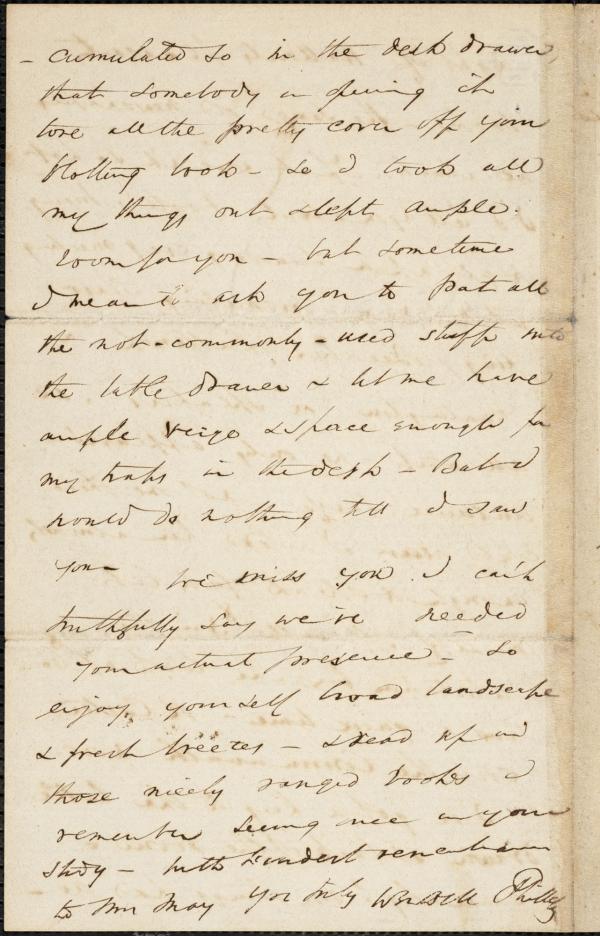 - cumulated so in the desk drawer,
that somebody in opening it
tore all the pretty cover off your
blotting book - So I took all
my things out & left ample
room for you - but sometime
I mean to ask you to put all
the not-commonly-used stuff into
the table drawer & let me have
ample verge & space enough for
my traps in the desk - But I
would do nothing till I saw
you - We miss you. I can't
truthfully say we've needed
your actual presence - So
enjoy yourself broad landscape
& fresh breezes - & read up in
those nicely ranged books I
remember seeing once in your
study - With kindest remembrances
to Mr May Yrs truly Wendell Phillips